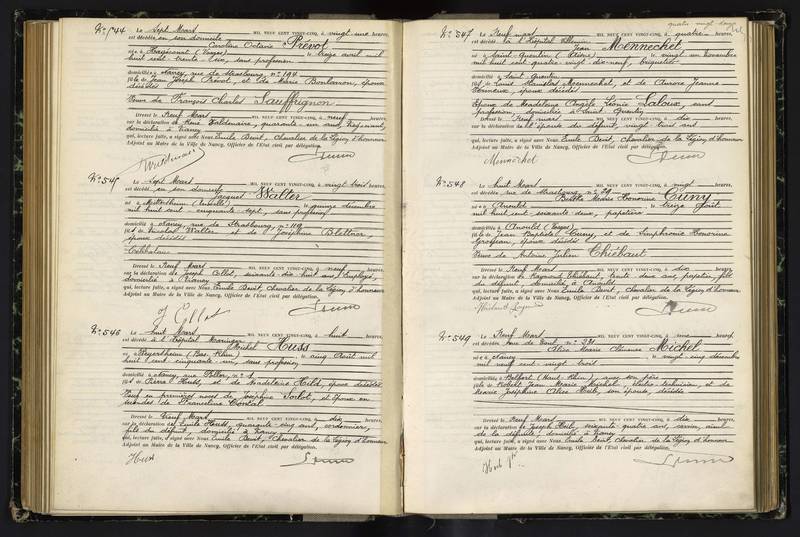 N° 544 Le Sept Mars MIL NEUF CENT VINGT-CINQ, à vingt une heures,
est décédée en son domicile
Caroline Octavie Prévot
née à (Vosges) le treize avril mil
huit cent trente-cinq, sans profession
domiciliée à Nancy, rue de Strasbourg, n° 194
fille de Jean Joseph Prévot, et de Marie époux
décédés
Veuve de François Charles Sauffrignon
Dressé le Neuf Mars MIL NEUF CENT VINGT-CINQ, à neuf heures,
sur la déclaration de René quarante-un ans,
domicilié à Nancy
qui, lecture faite, a signé avec Nous Emile Chevalier de la Légion d'honneur
Adjoint au Maire de la Ville de Nancy, Officier de l'Etat civil par délégation.
N° 545 Le Sept Mars MIL NEUF CENT VINGT-CINQ, à vingt trois heures,
est décédé en son domicile
Jacques Walter
né à (Moselle) le quinze décembre
mil huit cent cinquante-sept, sans profession
domicilié à Nancy, rue de Strasbourg, n° 119
fils de Nicolas Walter et de Joséphine Blettner,
époux décédés
Célibataire
Dressé le Neuf Mars MIL NEUF CENT VINGT-CINQ, à neuf heures,
sur la déclaration de Joseph Collot, soixante-dix huit ans, Employé,
domicilié à Nancy
qui, lecture faite, a signé avec Nous Emile Chevalier de la Légion d'honneur
Adjoint au Maire de la Ville de Nancy, Officier de l'Etat civil par délégation.
J Collot
N° 546 Le huit Mars MIL NEUF CENT VINGT-CINQ, à huit heures,
est décédé à l'Hôpital Maringer
Michel Huss
né à (Bas-Rhin) le cinq Août mil
huit cent cinquante-un, sans profession
domicilié à Nancy, rue
fils de Pierre Huss, et de Madeleine Hild, époux décédés
Veuf en premières noces de Joséphine Sorlot, et époux en
secondes de Françoise
Dressé le Neuf Mars MIL NEUF CENT VINGT-CINQ, à dix heures,
sur la déclaration de Emile Huss, quarante-cinq ans, cordonnier,
fils du défunt, domicilié à Nancy
qui, lecture faite, a signé avec Nous Emile Chevalier de la Légion d'honneur
Adjoint au Maire de la Ville de Nancy, Officier de l'Etat civil par délégation.
Huss
quatre vingt douze
N° 547 Le Neuf mars MIL NEUF CENT VINGT-CINQ, à quatre heures,
est décédé à l'Hôpital Villemin
Jean Mennechet
né à Saint-Quentin (Aisne) le vingt un novembre
mil huit cent quatre-vingt dix-neuf,
domicilié à Saint Quentin
fils de Louis Mennechet, et de Aurore Jeanne
époux décédés
Epoux de Madeleine Angèle Léonie Laloux, sans
profession, domiciliée à Saint Quentin
Dressé le Neuf mars MIL NEUF CENT VINGT-CINQ, à dix heures,
sur la déclaration de l'épouse du défunt, vingt trois ans
qui, lecture faite, a signé avec Nous Emile Chevalier de la Légion d'honneur
Adjoint au Maire de la Ville de Nancy, Officier de l'Etat civil par délégation.
Mennechet
N° 548 Le huit Mars MIL NEUF CENT VINGT-CINQ, à vingt heures,
est décédée rue de Strasbourg, n° 29
Berthe Marie Honorine Cuny
née à Anould le treize Août
mil huit cent soixante deux, papetière
domiciliée à Anould (Vosges)
fille de Jean Baptiste Cuny, et de Symphorine Honorine
Grosjean, époux décédés
Veuve de Antoine Julien Thiébaut
Dressé le Neuf Mars MIL NEUF CENT VINGT-CINQ, à dix heures,
sur la déclaration de Raymond Thiébaut, trente-deux ans, papetier, fils
du défunt, domicilié à Anould
qui, lecture faite, a signé avec Nous Emile Chevalier de la Légion d'honneur
Adjoint au Maire de la Ville de Nancy, Officier de l'Etat civil par délégation.
N° 549 Le Neuf Mars MIL NEUF CENT VINGT-CINQ, à une heures,
est décédée rue de Toul, n° 231
Alice Marie Michel
née à Nancy le vingt-cinq décembre
mil neuf cent vingt-trois
domiciliée à Belfort (Haut-Rhin), avec son père
fille de Robert Jean Marie Michel, électro-technicien, et de
Marie Joséphine Alice son épouse, décédée
Dressé le Neuf Mars MIL NEUF CENT VINGT-CINQ, à dix heures,
sur la déclaration de Joseph soixante-quatre ans, aïeul
de la défunte, domicilié à Nancy
qui, lecture faite, a signé avec Nous Emile Chevalier de la Légion d'honneur
Adjoint au Maire de la Ville de Nancy, Officier de l'Etat civil par délégation.